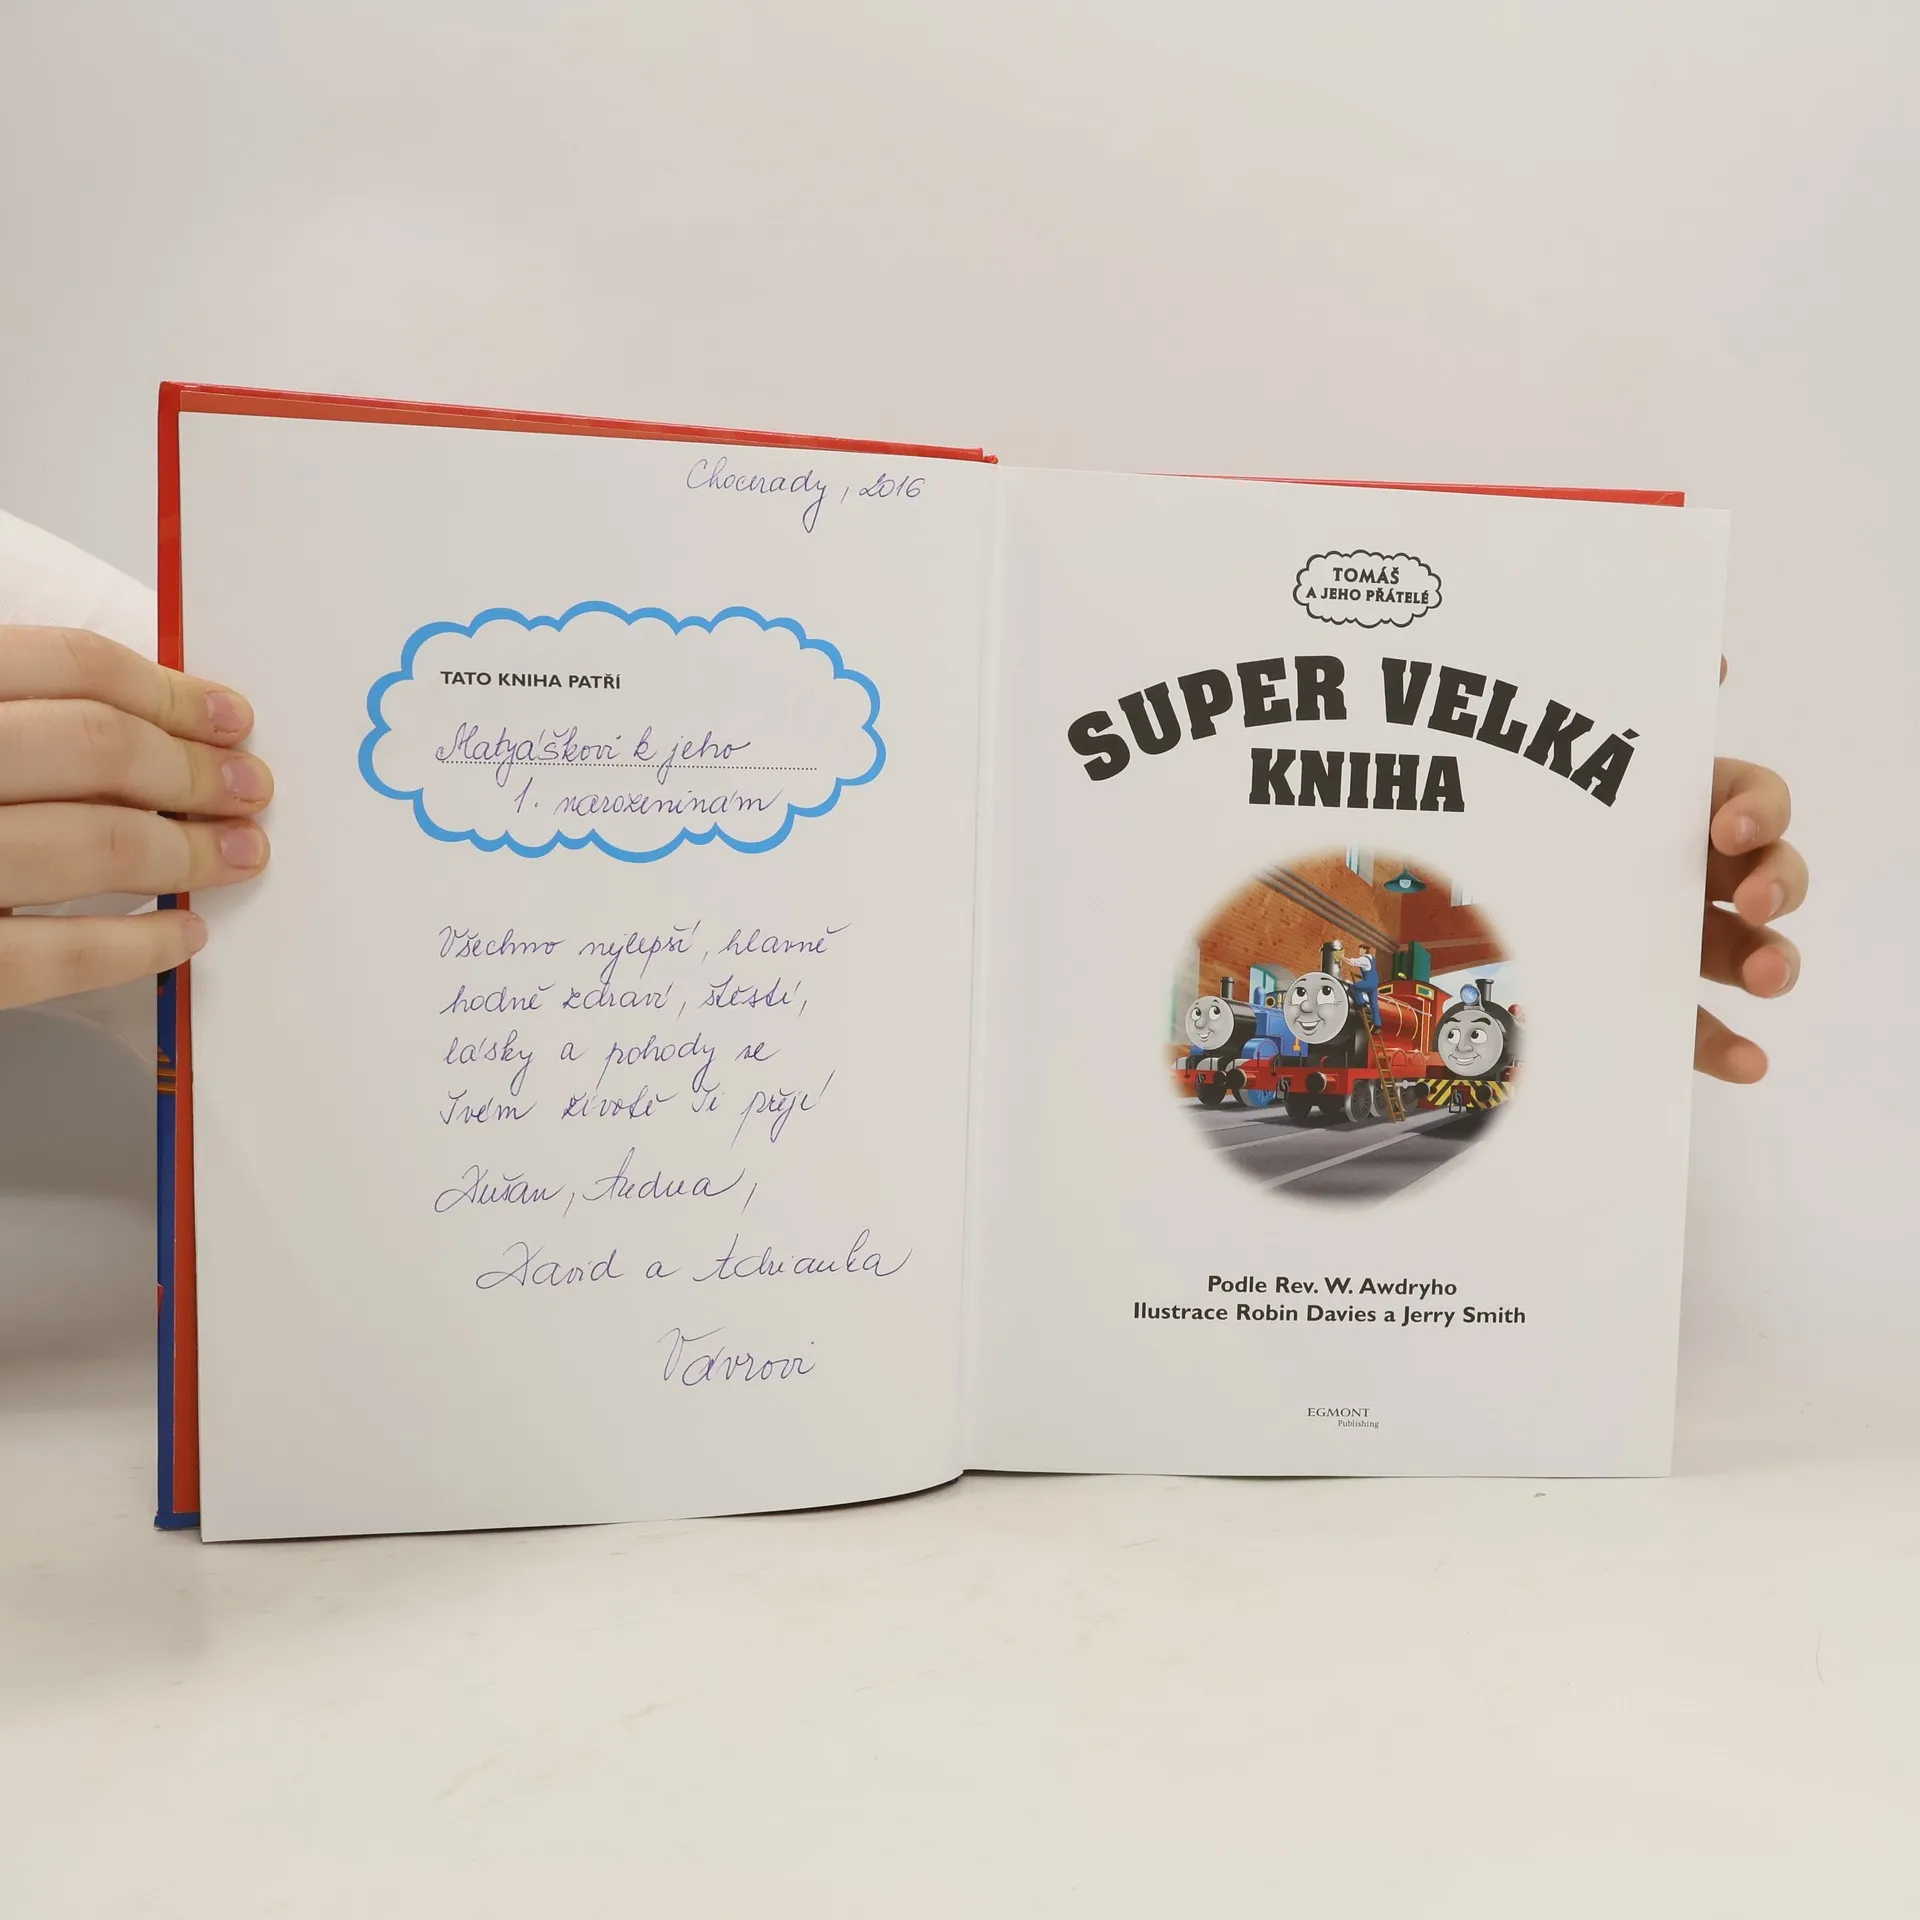 Chocerady, 2016
TATO KNIHA PATŘÍ
Matyáškovi k jeho
1. narozeninám
Všechno nejlepší, hlavně
hodně zdraví, štěstí,
lásky a pohody ve
Tvém životě Ti přejí
Dušan,
David a Adrianka
Vávrovi
TOMÁŠ
A JEHO PŘÁTELÉ
SUPER VELKÁ
KNIHA
Podle Rev. W. Awdryho
Ilustrace Robin Davies a Jerry Smith
EGMONT
Publishing